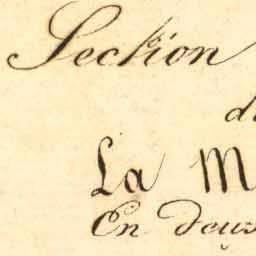 Section
La
En deux